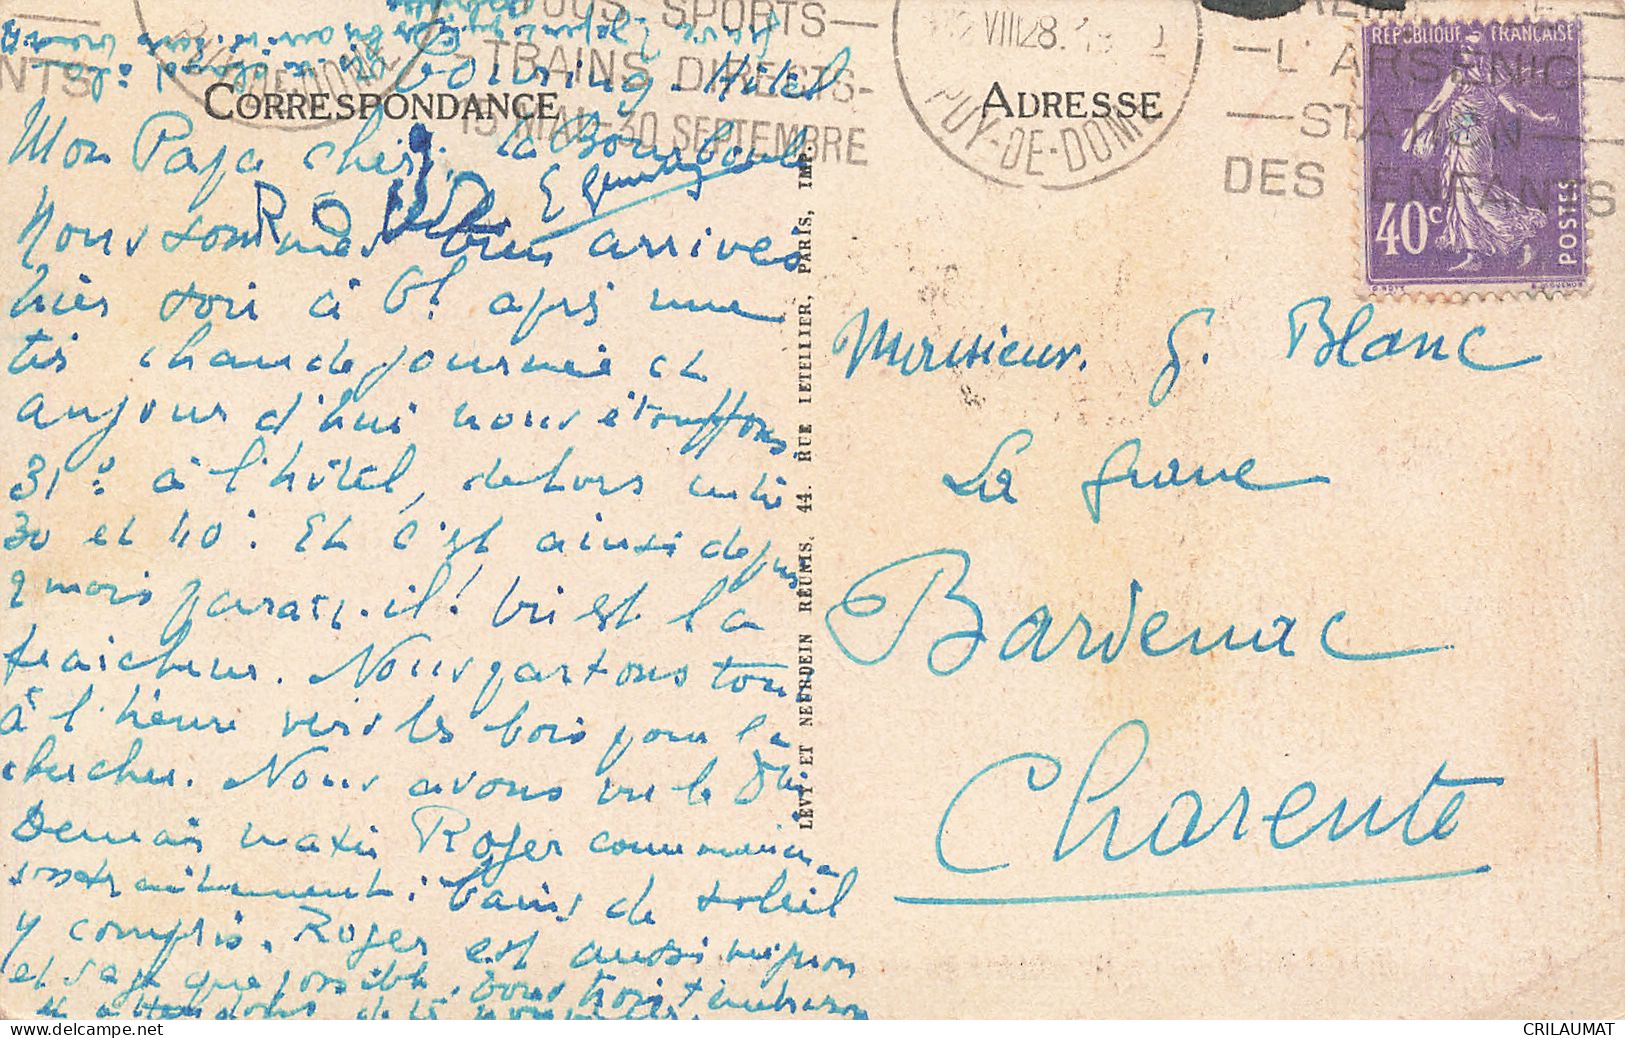 TOUS SPORTS
TRAINS DIRECTS
15 MAI-30 SEPTEMBRE
PUY-DE-DOME
VIII 28
L'ARSENIC
STATION
DES ENFANTS
REPUBLIQUE FRANÇAISE
40c
POSTES
CORRESPONDANCE
ADRESSE
Touring-Hôtel
Mon Papa cheri. La Bourboule
Nous sommes bien arrives
hier soir à 6h. après une
très chaude journée et
aujourd'hui nous étouffons
31° à l'hôtel, dehors entre
30 et 40°. Et c'est ainsi depuis
2 mois parait-il! Où est la
fraicheur. Nous partons tout
à l'heure vers les bois pour la
chercher. Nous avons vu le Dr.
Demain matin Roger commencera
son traitement: bains de soleil
y compris. Roger est aussi mignon
et sage que possible. Vous trois t'embrassons
LEVY ET NEURDEIN REUNIS. 44. RUE LETELLIER, PARIS, IMP.
Monsieur. G. Blanc
La grave
Bardenac
Charente
CRILAUMAT